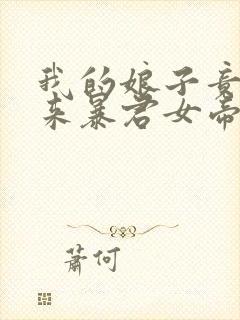 我的娘子竟
来暴君女帝
萧何